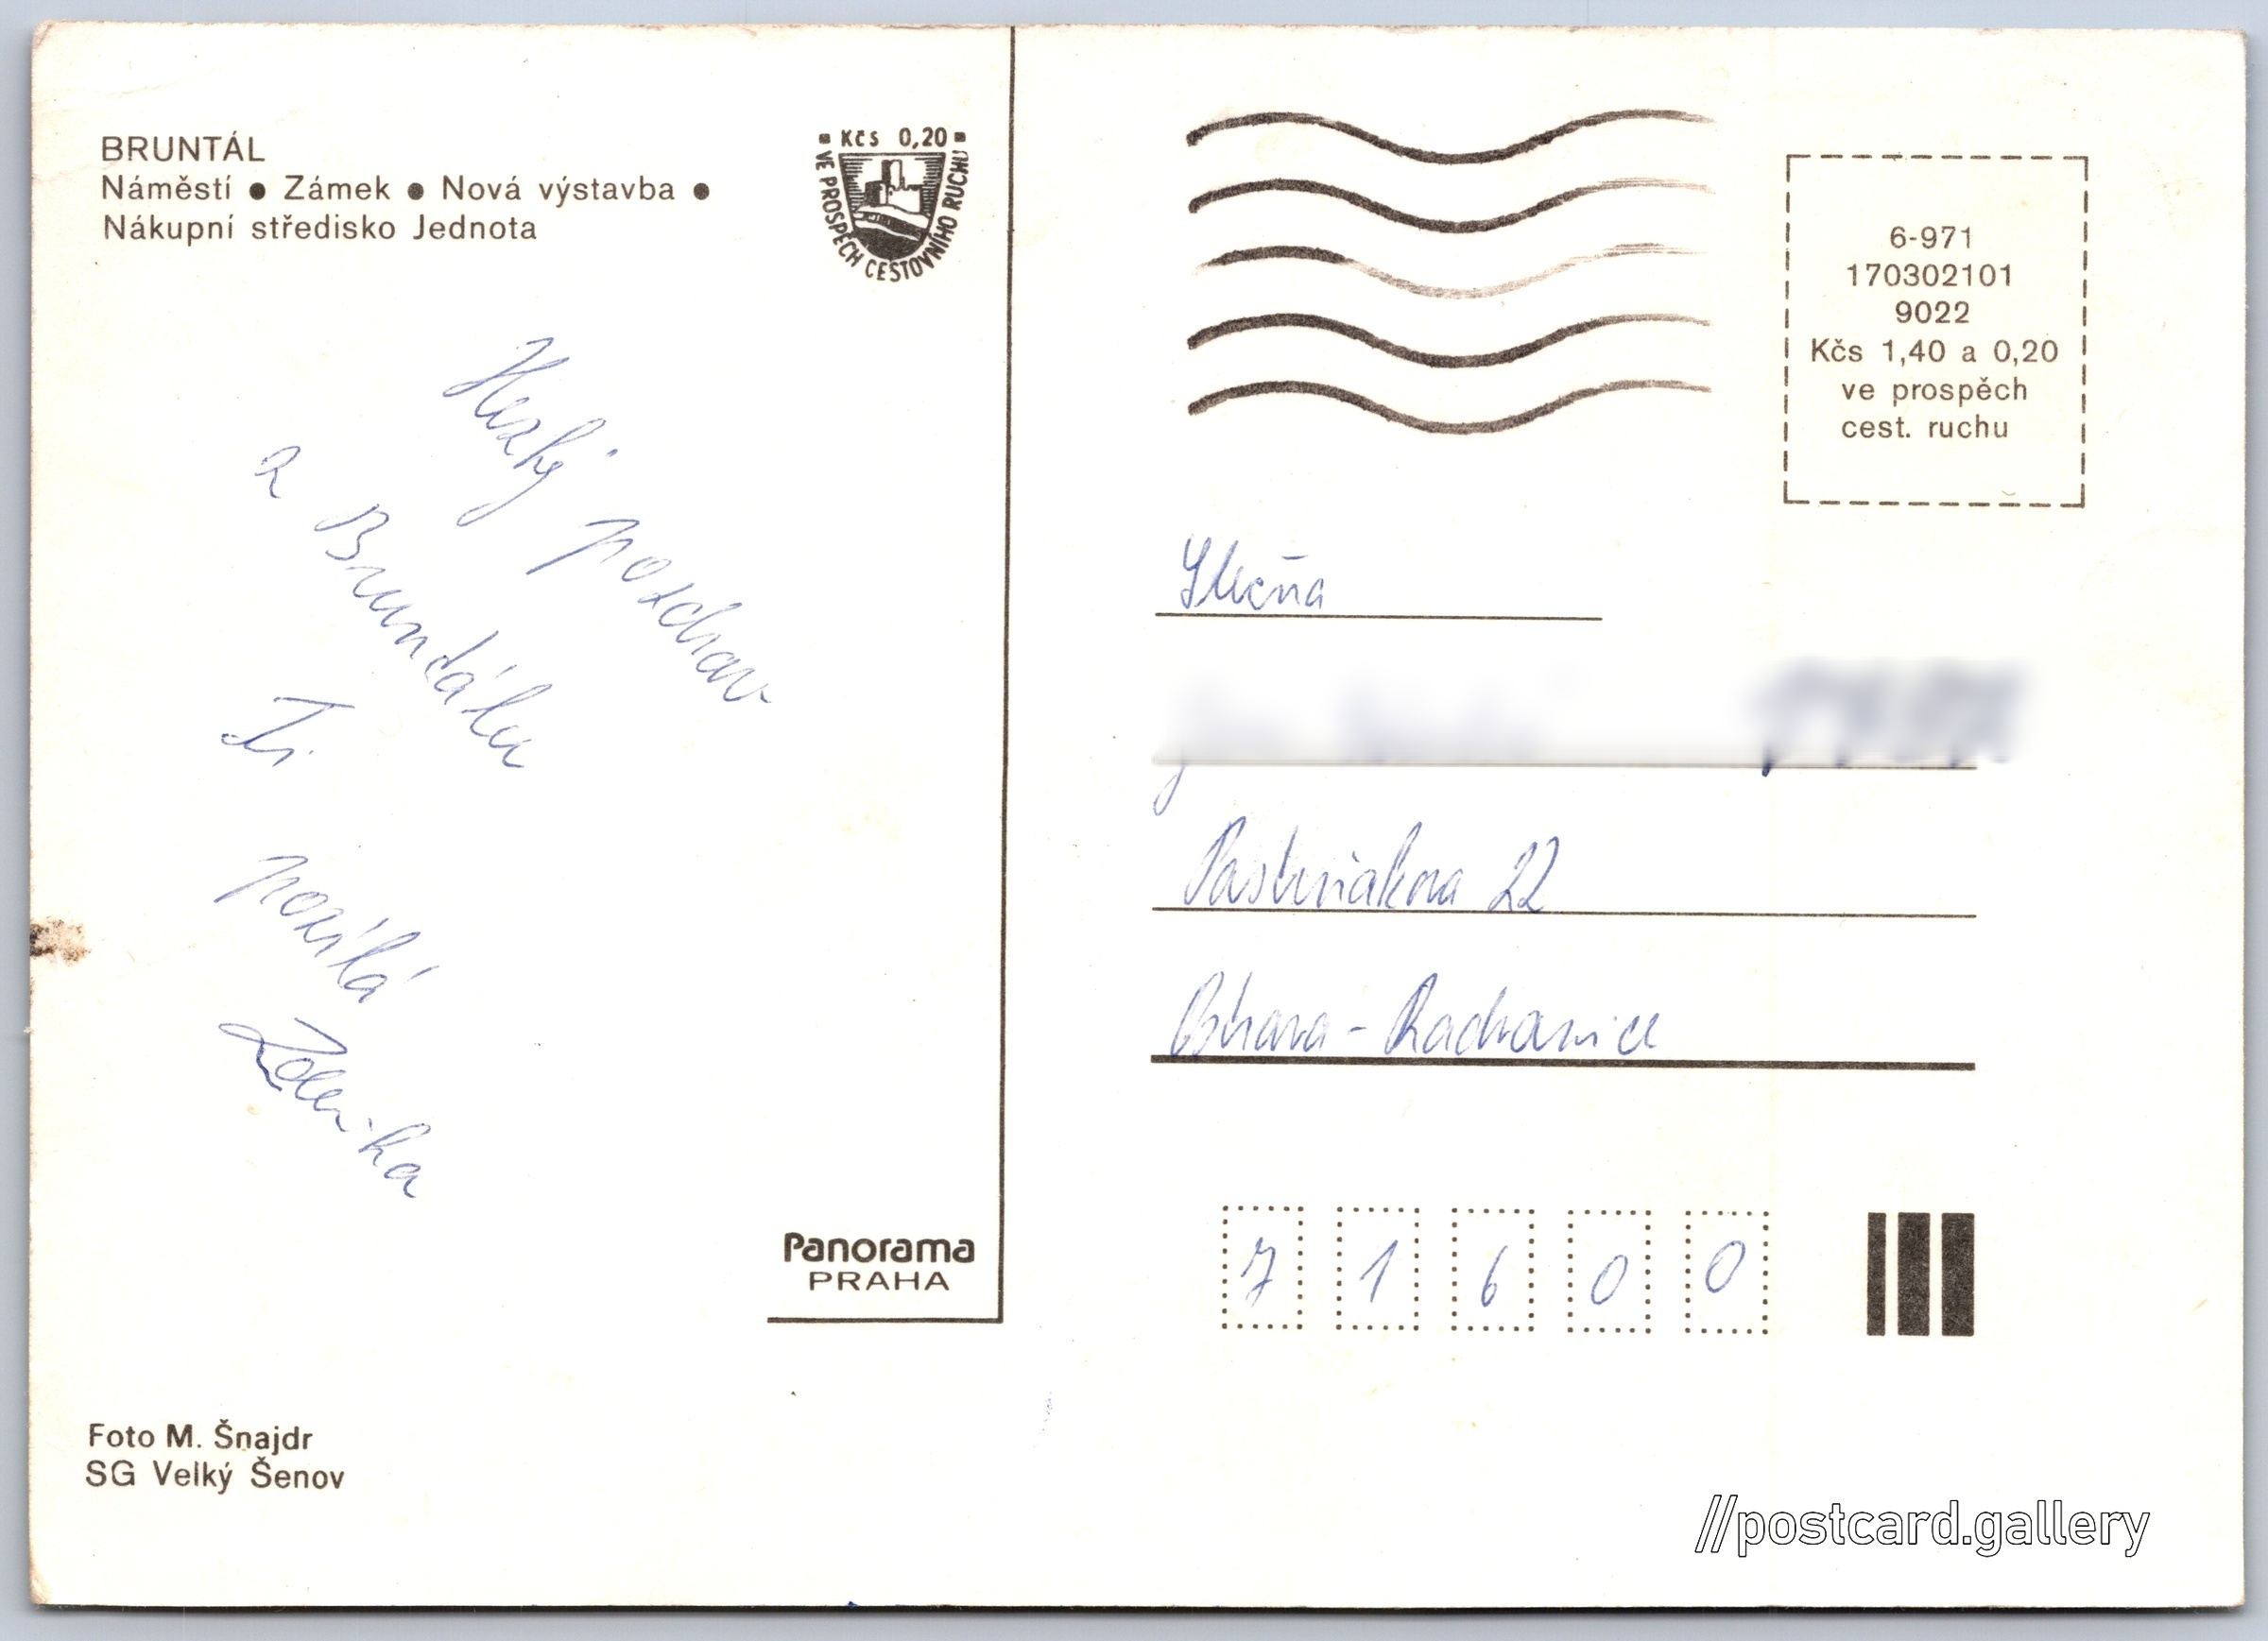 BRUNTÁL
Náměstí ● Zámek ● Nová výstavba ●
Nákupní středisko Jednota
Kčs 0,20
VE PROSPĚCH CESTOVNÍHO RUCHU
Hezký pozdrav
z Brundálu
Ti
posílá
Zdenka
Panorama
PRAHA
Foto M. Šnajdr
SG Velký Šenov
6-971
170302101
9022
Kčs 1,40 a 0,20
ve prospěch
cest. ruchu
Slečna
Pasterňákova 22
Ostrava - Radvanice
7 1 6 0 0
//postcard.gallery